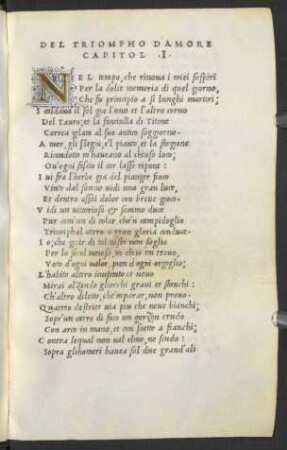 DEL TRIOMPHO D'AMORE
CAPITOL .I.
NEL tempo, che rinoua i miei sospiri
Per la dolce memoria di quel giorno,
Che fu principio a si lunghi martiri;
Scaldaua il sol gia l'uno et l'altro corno
Del Tauro; et la fanciulla di Titone
Correa gelata al suo antico soggiorno.
Amor, gli sdegni, e'l pianto, et la stagione
Ricondotto m'haueano al chiuso loco;
Ou'ogni fascio il cor lasso ripone:
Iui fra l'herbe gia del pianger fioco
Vinto dal sonno uidi una gran luce,
Et dentro assai dolor con breue gioco.
Vidi un uittorioso et sommo duce
Pur com'un di color che'n campidoglio
Triomphal carro a gran gloria conduce.
Io; che gioir di tal uista non soglio
Per lo secol noioso, in ch'io mi trouo,
Voto d'ogni ualor, pien d'ogni orgoglio;
L'habito altero inusitato et nouo
Mirai alzando gliocchi graui et stanchi:
Ch'altro diletto, che'mparar, non prouo.
Quattro destrier uia piu che neue bianchi;
Sopr'un carro di fuco un garzon crudo
Con arco in mano, et con saette a fianchi;
Contra lequal non ual elmo, ne scudo:
Sopra glihomeri hauea sol due grand'ali